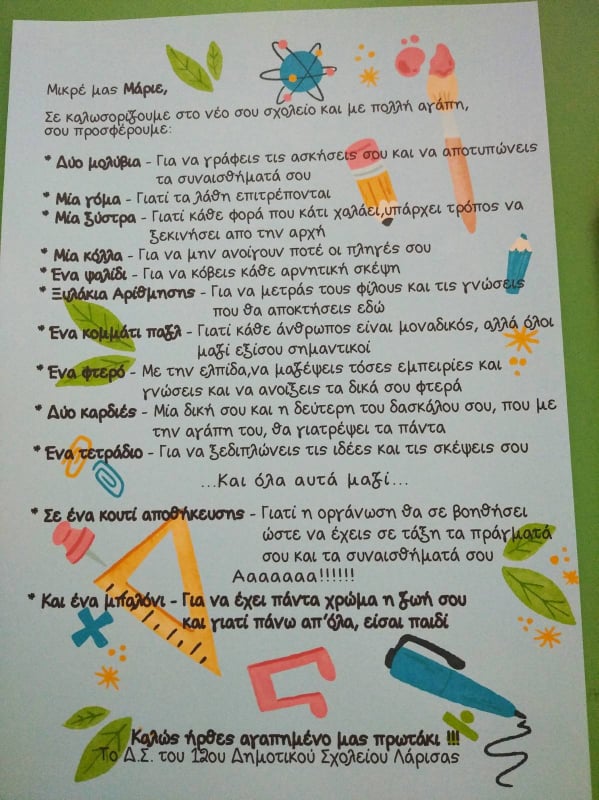 Μικρέ μας Μάριε,
Σε καλωσορίζουμε στο νέο σου σχολείο και με πολλή αγάπη,
σου προσφέρουμε:
* Δύο μολύβια - Για να γράφεις τις ασκήσεις σου και να αποτυπώνεις
τα συναισθήματά σου
* Μία γόμα - Γιατί τα λάθη επιτρέπονται
* Μία ξύστρα - Γιατί κάθε φορά που κάτι χαλάει,υπάρχει τρόπος να
ξεκινήσει απο την αρχή
* Μία κόλλα - Για να μην ανοίγουν ποτέ οι πληγές σου
* Ένα ψαλίδι - Για να κόβεις κάθε αρνητική σκέψη
* Ξυλάκια Αρίθμησης - Για να μετράς τους φίλους και τις γνώσεις
που θα αποκτήσεις εδώ
* Ένα κομμάτι παζλ - Γιατί κάθε άνθρωπος είναι μοναδικός, αλλά όλοι
μαζί εξίσου σημαντικοί
* Ένα φτερό - Με την ελπίδα,να μαζέψεις τόσες εμπειρίες και
γνώσεις και να ανοίξεις τα δικά σου φτερά
* Δύο καρδιές - Μία δική σου και η δεύτερη του δασκάλου σου, που με
την αγάπη του, θα γιατρέψει τα πάντα
* Ένα τετράδιο - Για να ξεδιπλώνεις τις ιδέες και τις σκέψεις σου
...Και όλα αυτά μαζί...
* Σε ένα κουτί αποθήκευσης - Γιατί η οργάνωση θα σε βοηθήσει
ώστε να έχεις σε τάξη τα πράγματά
σου και τα συναισθήματά σου
Ααααααα!!!!!!
* Και ένα μπαλόνι - Για να έχει πάντα χρώμα η ζωή σου
και γιατί πάνω απ'όλα, είσαι παιδί
Καλώς ήρθες αγαπημένο μας πρωτάκι !!!
Το Δ.Σ. του 12ου Δημοτικού Σχολείου Λάρισας